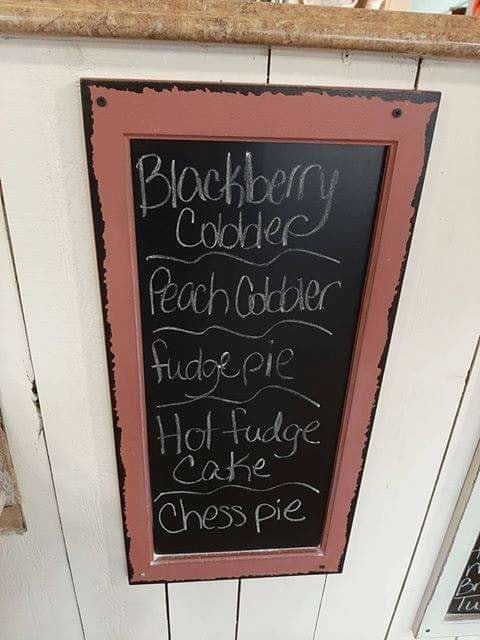 Blackberry
Cobbler
Peach Cobbler
fudge pie
Hot fudge
Cake
Chess pie